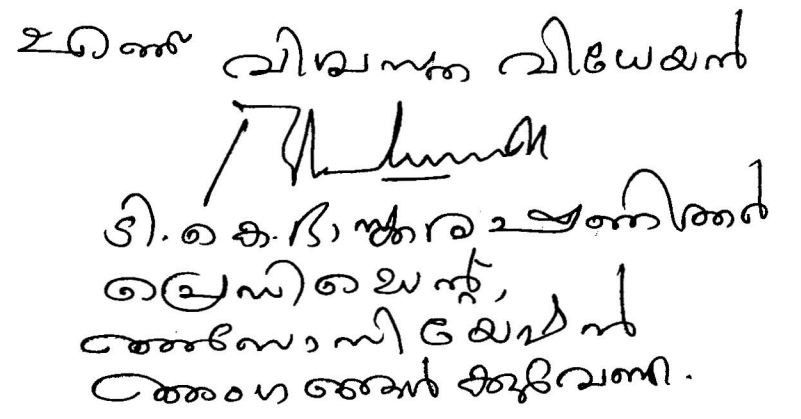 എന്ന് വിശ്വസ്ത വിധേയൻ
ടി.കെ.ഭാസ്കരപണിക്കർ
പ്രെസിഡെന്റ്,
അസോസിയേഷൻ
അംഗങ്ങൾക്കുവേണ്ടി.